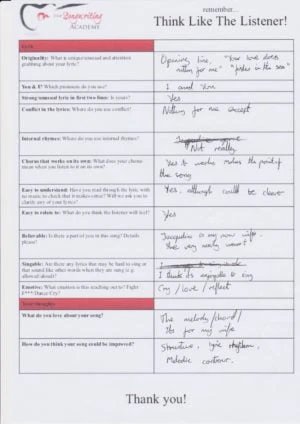 remember...
The Songwriting
ACADEMY
Think Like The Listener!
Lyric
Originality: What is unique/unusual and attention
grabbing about your lyric?
Opening line, "Your love does
nothing for me"
You & I? Which pronouns do you use?
I and You
Strong/unusual lyric in first two lines: Is yours?
Yes
Conflict in the lyrics: Where do you use conflict?
Nothing for me concept
Internal rhymes: Where do you use internal rhymes?
Not really
Chorus that works on its own: What does your chorus
mean when you listen to it on its own?
Yes it works makes the point of
the song
Easy to understand: Have you read through the lyric, with
no music to check that it makes sense? Will we ask you to
clarify any of your lyrics?
Yes, although could be clearer
Easy to relate to: What do you think the listener will feel?
Yes
Believable: Is there a part of you in this song? Details
please!
Jacqueline is my now wife.
Singable: Are there any lyrics that may be hard to sing or
that sound like other words when they are sung (e.g.
allowed/aloud)?
I think its enjoyable to sing
Emotive: What emotion is this reaching out to? Fight /
F*** /Dance/Cry?
Cry / love / reflect
Your thoughts
What do you love about your song?
The melody/chord/
Its for my wife
How do you think your song could be improved?
Structure, lyric rhythm,
Melodic contour.
Thank you!